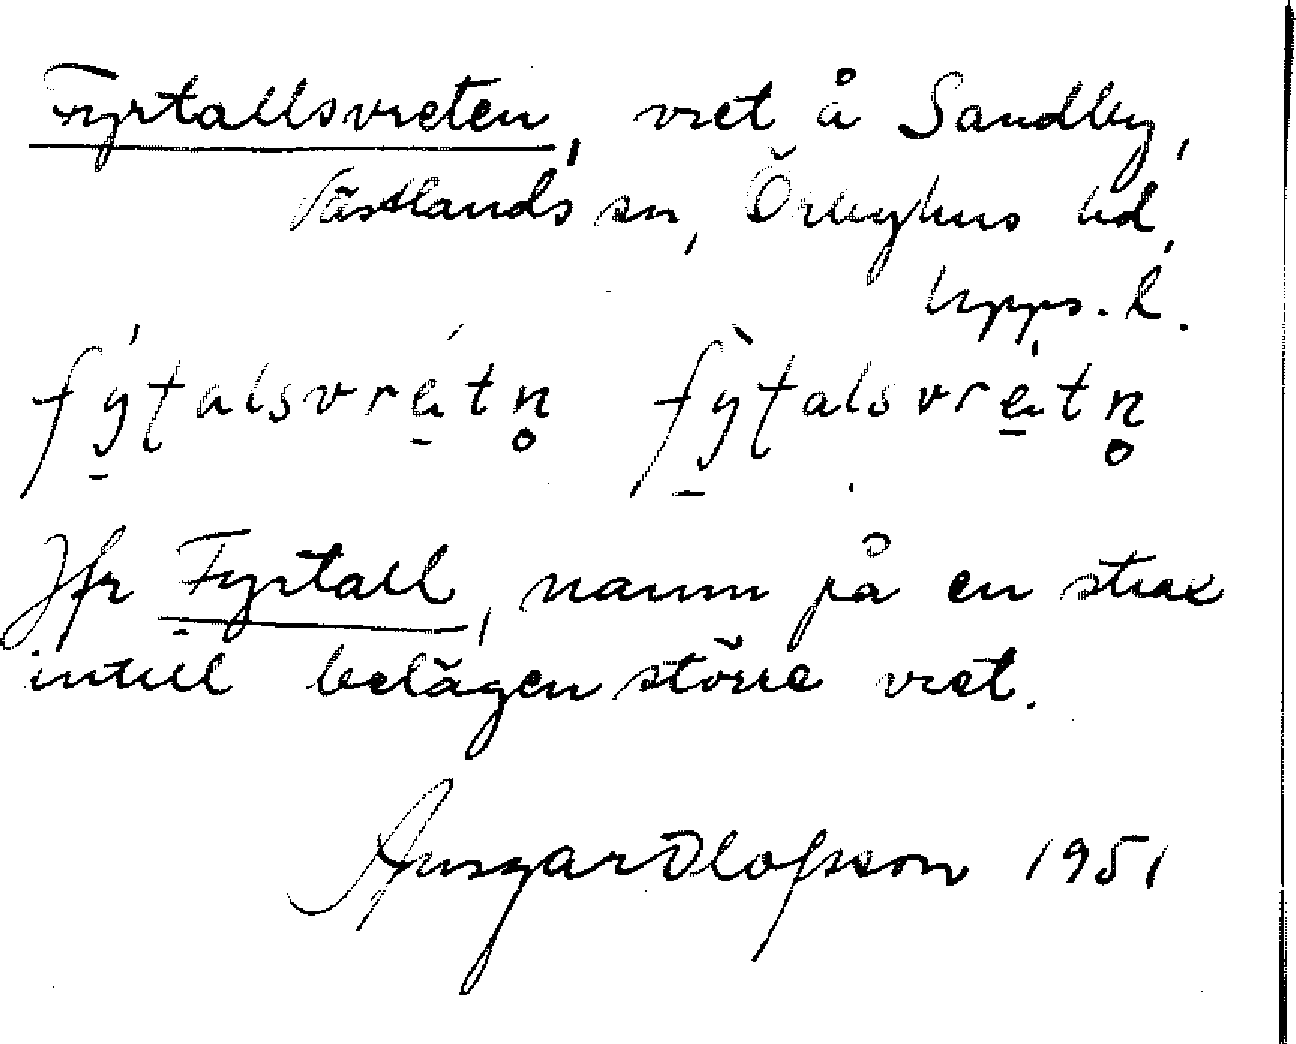 Fyrtallsvreten, vret å Sandby,
Västlands sn, Örbyhus hd,
Upps. l.
fýtalsvrétn̥ fỳtalsvrétn̥
Jfr Fyrtall, namn på en strax
intill belägen större vret.
Ansgar Olofsson 1951